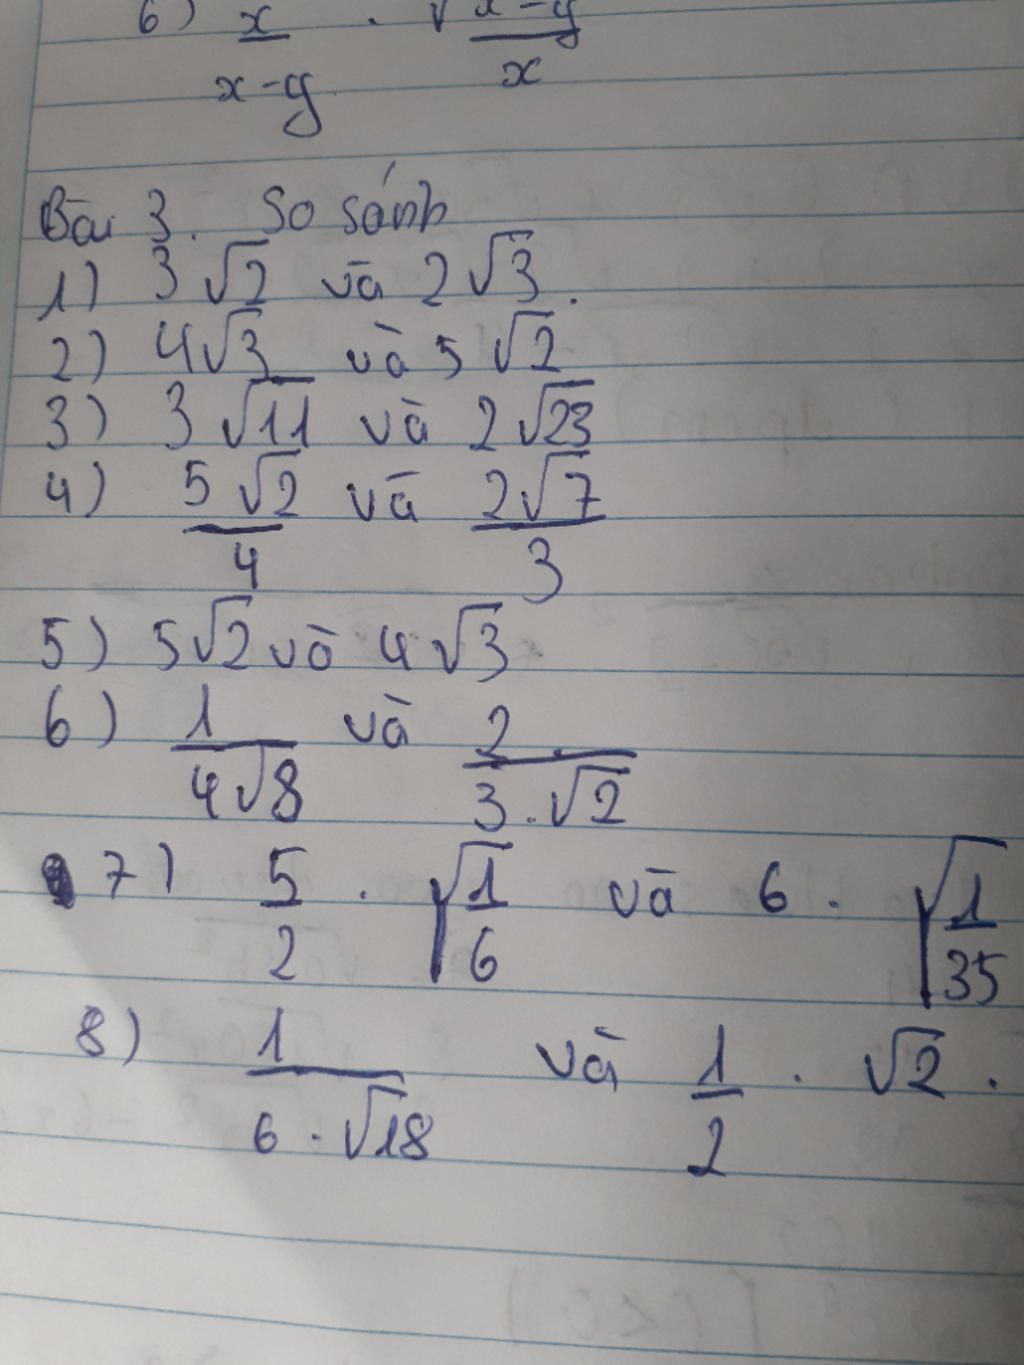 6) x/(x-y) . √((x-y)/x)
Bài 3. So sánh
1) 3√2 và 2√3.
2) 4√3 và 5√2
3) 3√11 và 2√23
4) 5√2/4 và 2√7/3
5) 5√2 và 4√3
6) 1/(4√8) và 2/(3.√2)
7) 5/2 . √(1/6) và 6. √(1/35)
8) 1/(6.√18) và 1/2 . √2.